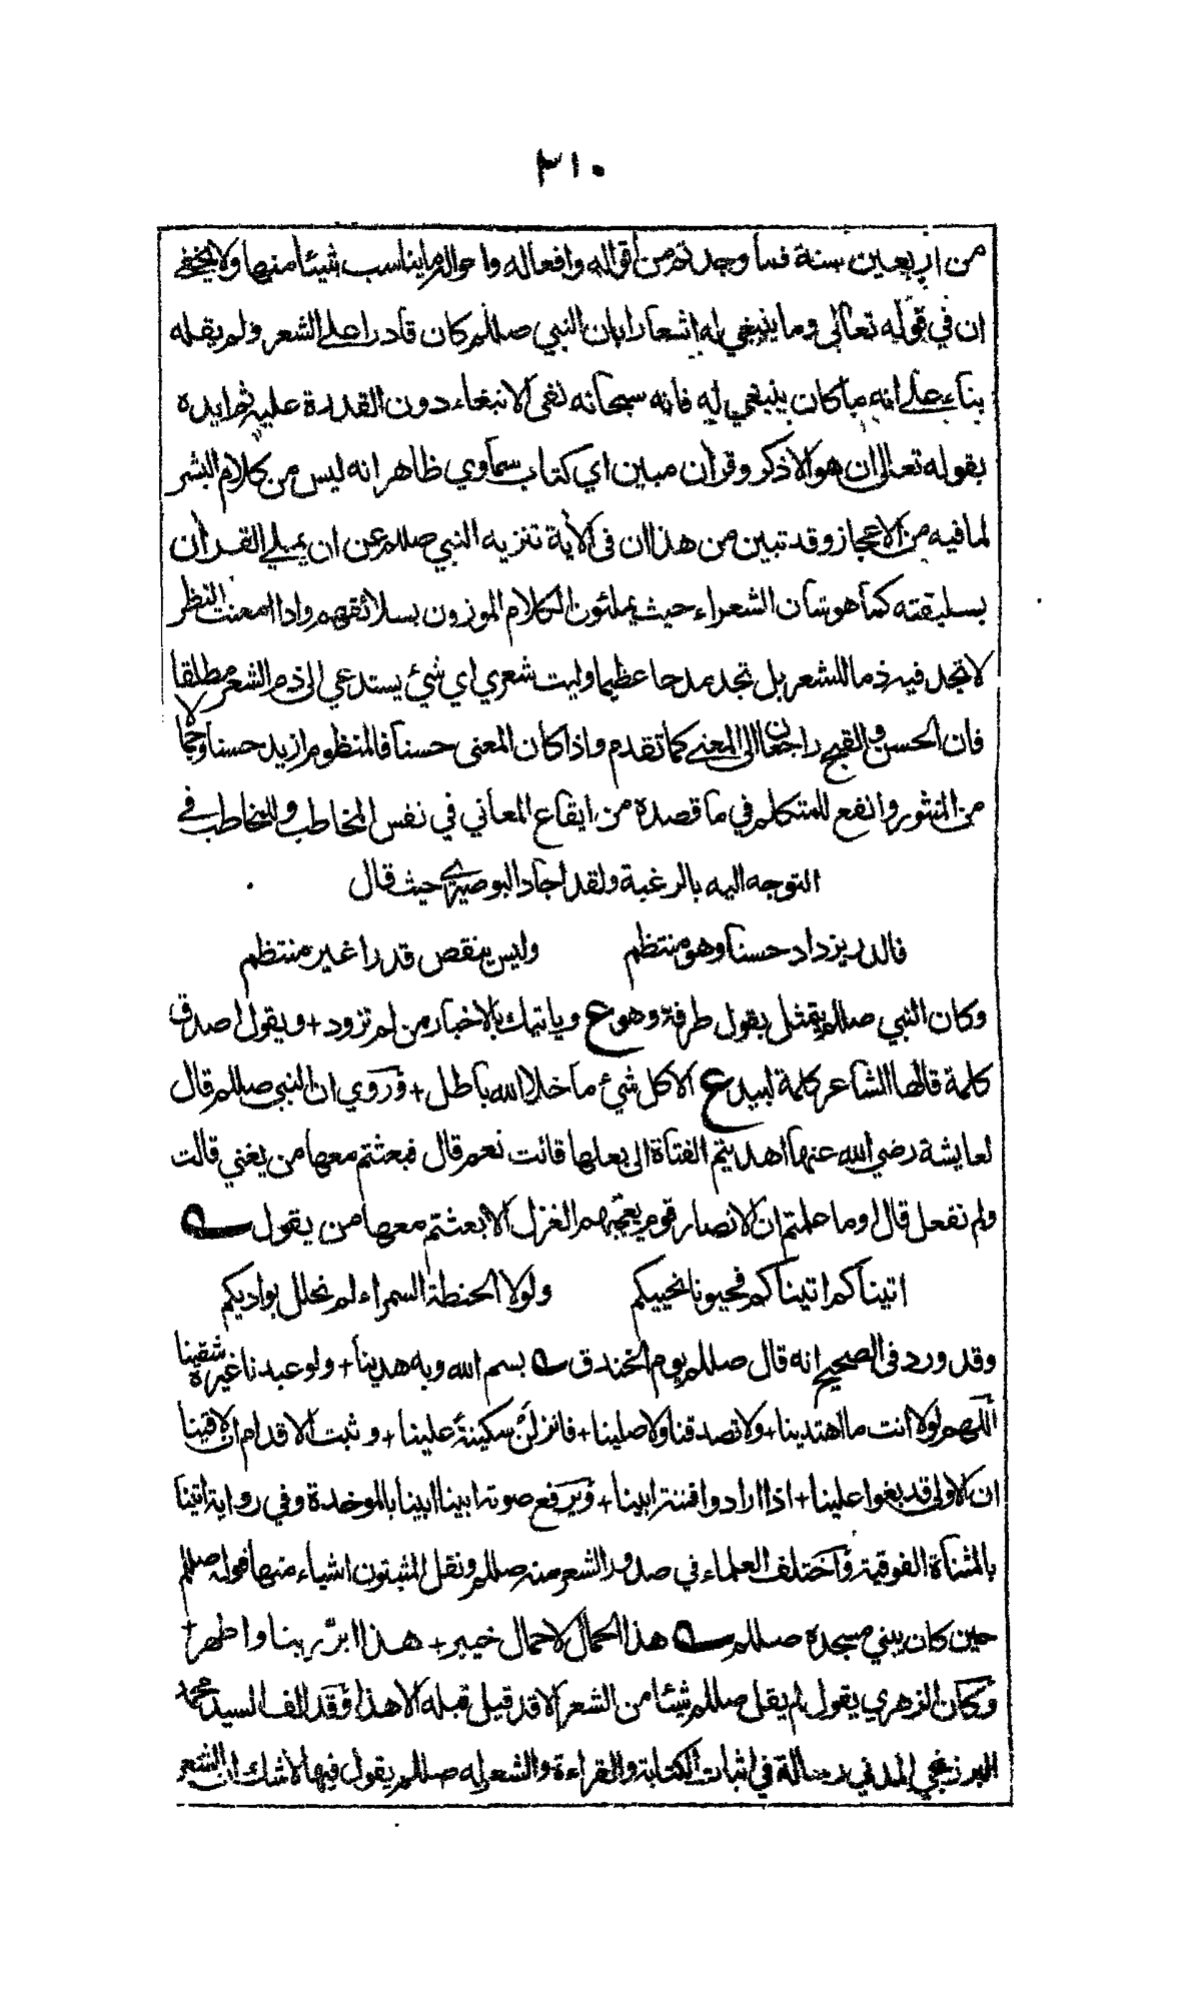 ٢١٠
من اربعين سنة فما وجدتم من أقواله وافعاله واحواله ما يناسب شيئا منها ولا يخفى
ان في قوله تعالى وما ينبغي له اشعارا بان النبي صللم كان قادرا على الشعر ولم يقله
بناء على انه ما كان ينبغي له فانه سبحانه نفى الانبغاء دون القدرة عليه ثم ايده
بقوله تعالى ان هو الا ذكر وقرآن مبين اي كتاب سماوي ظاهر انه ليس من كلام البشر
لما فيه من الاعجاز وقد تبين من هذا ان في الآية تنزيه النبي صللم عن ان يملي القرآن
بسليقته كما هو شان الشعراء حيث يملئون الكلام الموزون بسلائقهم واذا امعنت النظر
لا تجد فيه ذما للشعر بل تجد مدحا عظيما وليت شعري اي شئ يستدعي الى ذم الشعر مطلقا
فان الحسن والقبح راجعان الى المعنى كما تقدم واذا كان المعنى حسنا فالمنظوم ازيد حسنا وجمالا
من المنثور وانفع للمتكلم في ما قصده من ايقاع المعاني في نفس المخاطب وللمخاطب في
التوجه اليه بالرغبة ولقد اجاد البوصيري حيث قال
فالدر يزداد حسنا وهو منتظم وليس ينقص قدرا غير منتظم
وكان النبي صللم يتمثل بقول طرفة وهو ع وياتيك بالاخبار من لم تزود + ويقول اصدق
كلمة قالها الشاعر كلمة لبيد ع الا كل شئ ما خلا الله باطل + وروي ان النبي صللم قال
لعايشة رضي الله عنها اهديتم الفتاة الى بعلها قالت نعم قال فبعثتم معها من يغني قالت
ولم نفعل قال اوما علمتم ان الانصار قوم يعجبهم الغزل الا بعثتم معها من يقول
اتيناكم اتيناكم فحيونا نحييكم ولولا الحنطة السمراء لم نحلل بواديكم
وقد ورد في الصحيح انه قال صللم يوم الخندق بسم الله وبه هدينا + ولو عبدنا غيره شقينا
اللهم لولا انت ما اهتدينا + ولا تصدقنا ولا صلينا + فانزلن سكينة علينا + وثبت الاقدام ان لاقينا
ان الاولى قد بغوا علينا + اذا ارادوا فتنة ابينا + ويرفع صوته ابينا ابينا بالموحدة وفي رواية اتينا
بالمثناة الفوقية واختلف العلماء في صدور الشعر منه صللم ونقل المثبتون اشياء منها قوله صللم
حين كان يبني مسجده صللم هذا الحمال لا حمال خيبر + هذا ابر ربنا واطهر +
وكان الزهري يقول لم يقل صللم شيئا من الشعر الا قد قيل قبله الا هذا وقد الف السيد محمد
البرزنجي المدني رسالة في اثبات الكتابة والقراءة والشعر له صللم يقول فيها لا شك ان الشعر